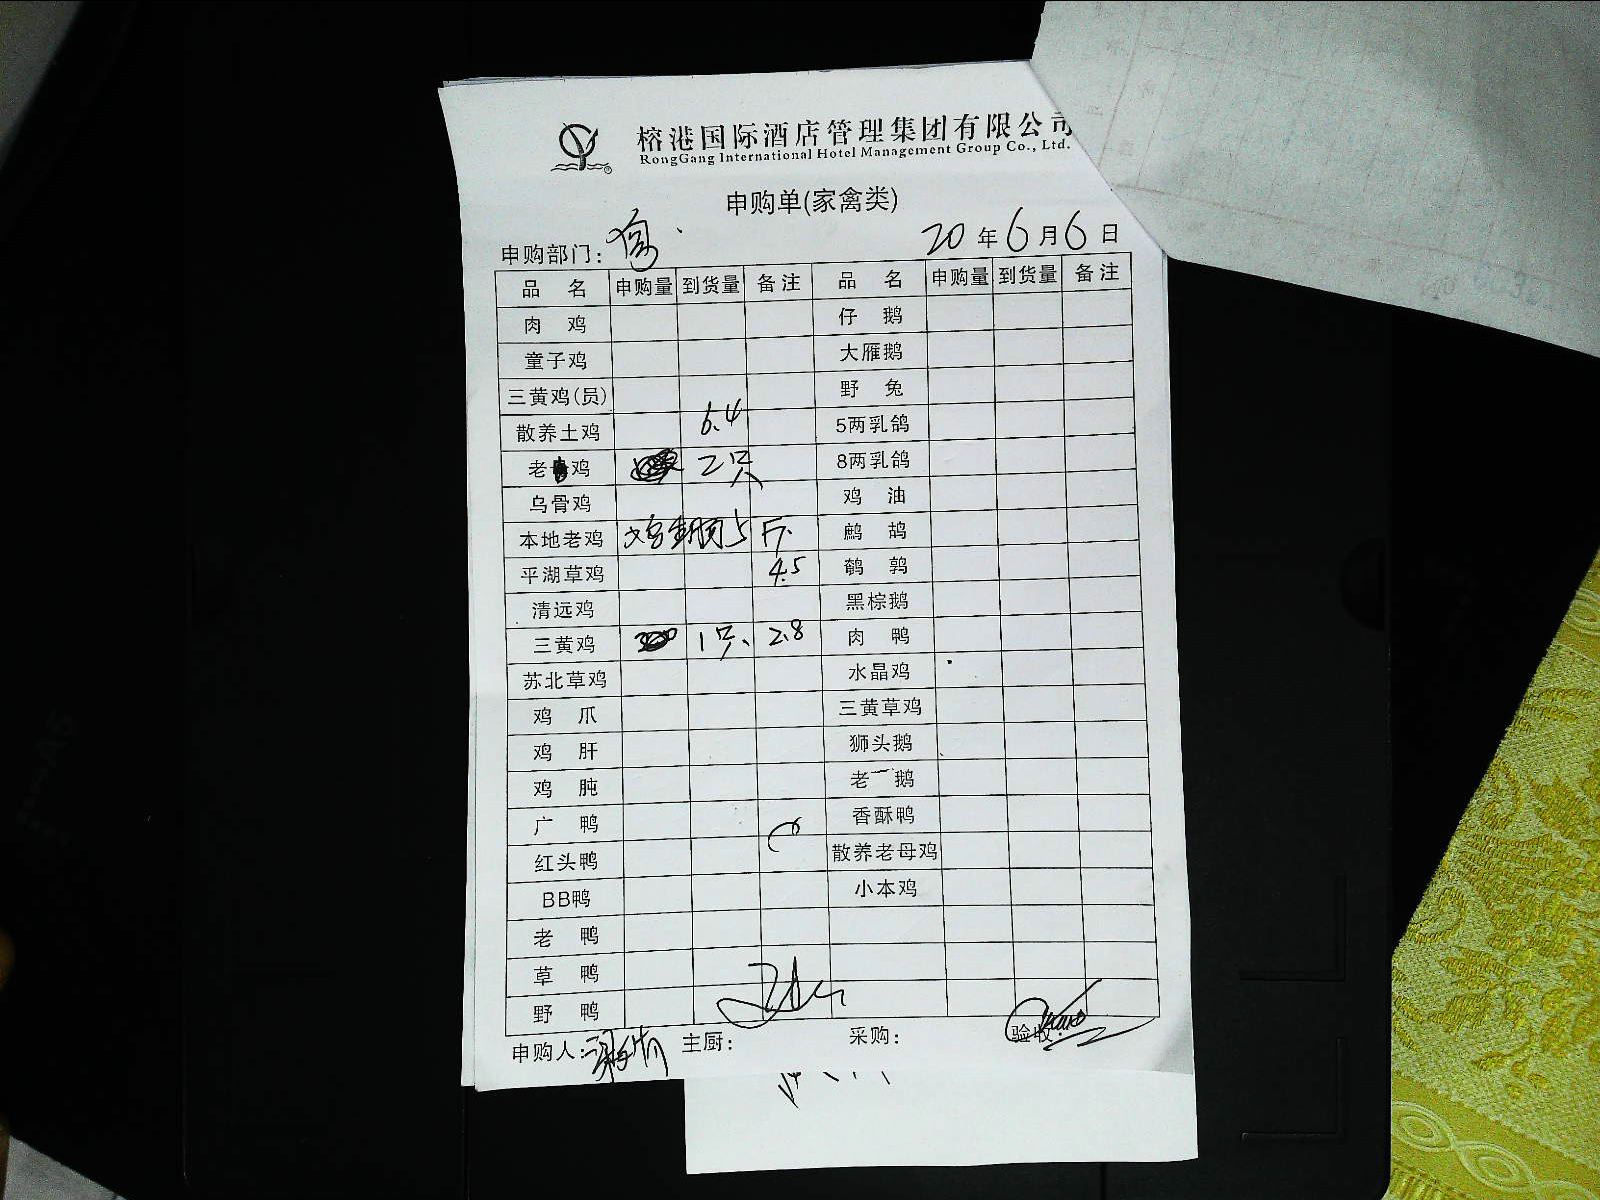 榕港国际酒店管理集团有限公司
RongGang International Hotel Management Group Co., Ltd.
申购单(家禽类)
申购部门:
20年6月6日
品 名 申购量 到货量 备注 品 名 申购量 到货量 备注
肉 鸡 仔 鹅
童子鸡 大雁鹅
三黄鸡(员) 野 兔
散养土鸡 6.4 5两乳鸽
老 鸡 2只 8两乳鸽
乌骨鸡 鸡 油
本地老鸡 5斤 鹧 鸪
平湖草鸡 4.5 鹌 鹑
清远鸡 黑棕鹅
三黄鸡 1只 2.8 肉 鸭
苏北草鸡 水晶鸡
鸡 爪 三黄草鸡
鸡 肝 狮头鹅
鸡 肫 老 鹅
广 鸭 香酥鸭
红头鸭 散养老母鸡
BB鸭 小本鸡
老 鸭
草 鸭
野 鸭
申购人: 主厨: 采购: 验收: